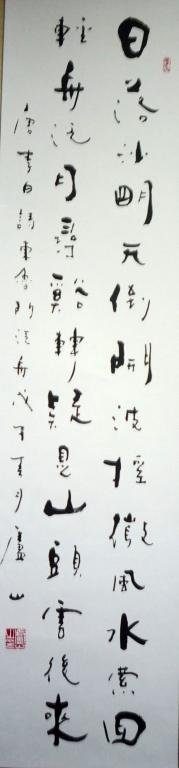 日落沙明天倒開波搖微風水縈回
輕舟泛月尋谿轉疑是山頭雪後來
唐李白詩東魯門泛舟戊子夏月廬山